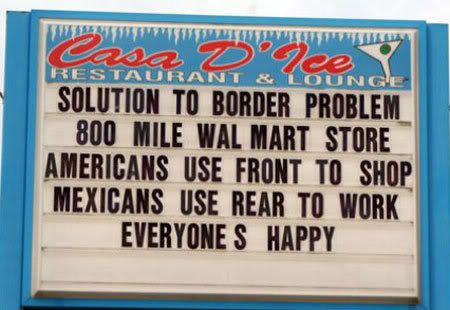 Casa D'Ice
RESTAURANT & LOUNGE
SOLUTION TO BORDER PROBLEM
800 MILE WAL MART STORE
AMERICANS USE FRONT TO SHOP
MEXICANS USE REAR TO WORK
EVERYONE S HAPPY